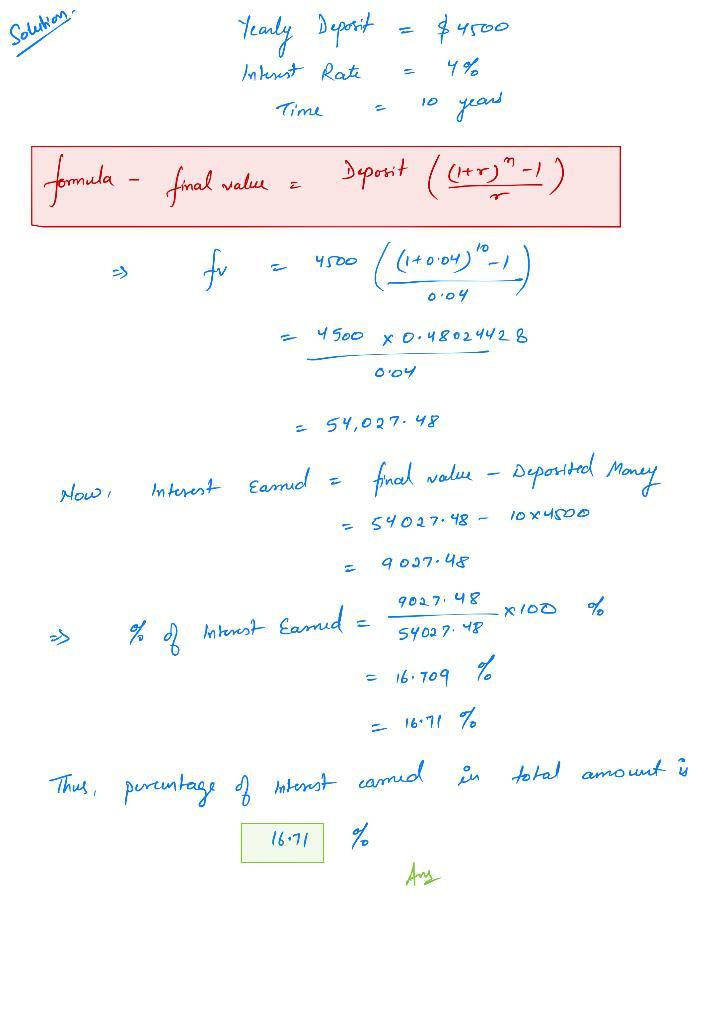 Solution.
Yearly Deposit = $4500
Interest Rate = 4%
Time = 10 years
formula - final value = Deposit ( ((1+r)^n - 1) / r )
⇒ fv = 4500 ( ((1+0.04)^10 - 1) / 0.04 )
= (4500 × 0.48024428) / 0.04
= 54,027.48
Now, Interest Earned = final value - Deposited Money
= 54027.48 - 10×4500
= 9027.48
⇒ % of Interest Earned = 9027.48 / 54027.48 ×100 %
= 16.709 %
= 16.71 %
Thus, percentage of Interest earned in total amount is
16.71 %
Ans